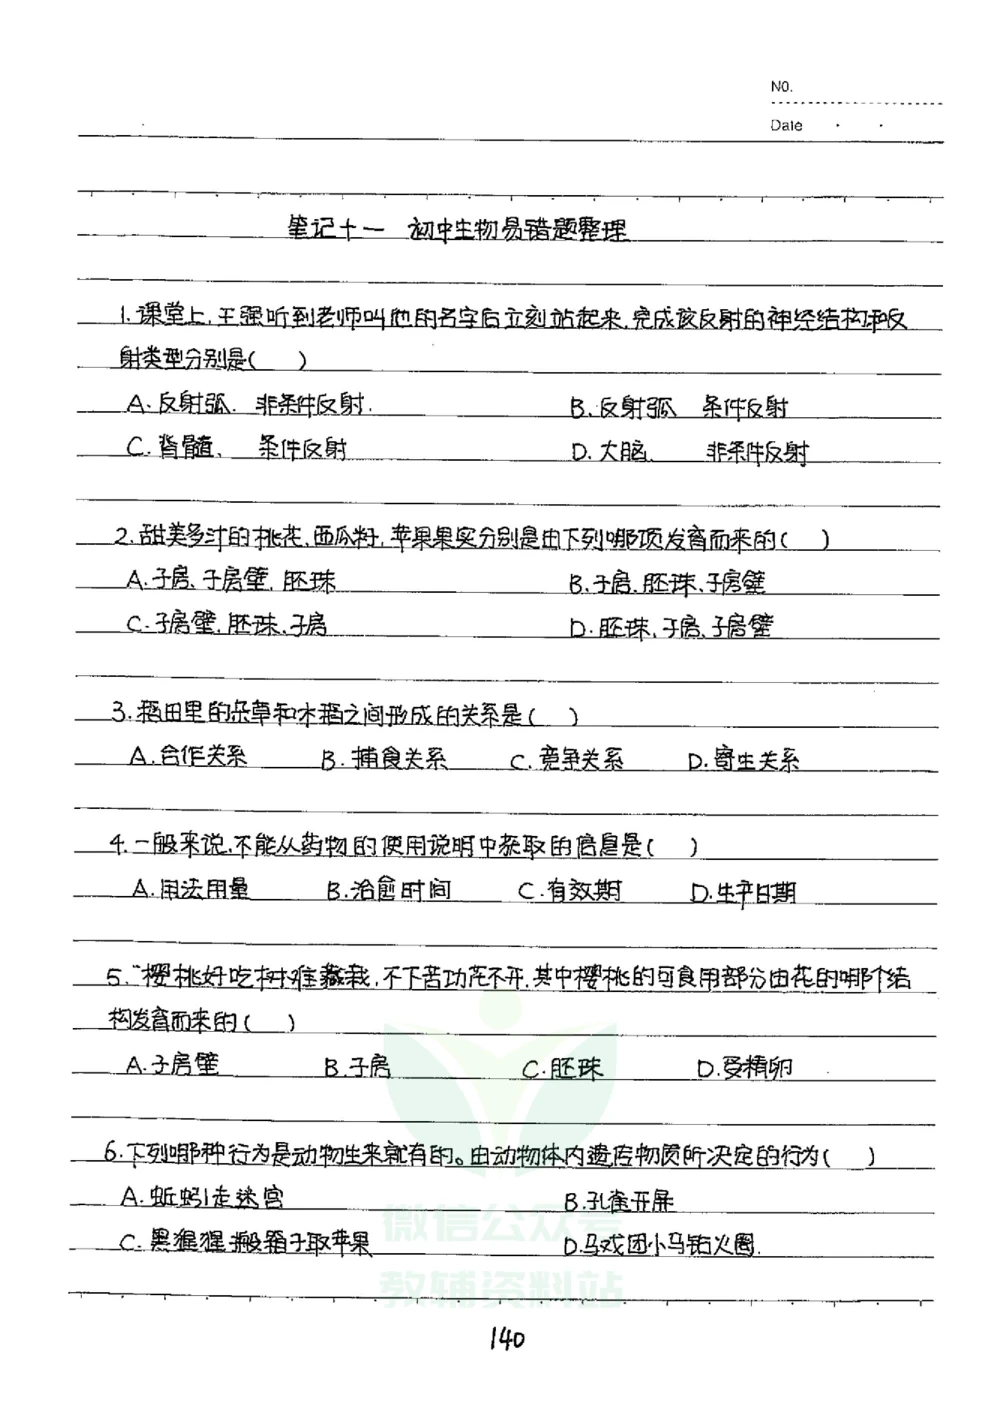 NO.
Date
笔记十一 初中生物易错题整理
1.课堂上,王强听到老师叫他的名字后立刻站起来,完成该反射的神经结构和反
射类型分别是( )
A.反射弧. 非条件反射.
B.反射弧 条件反射
C.脊髓、 条件反射
D.大脑、 非条件反射
2.甜美多汁的桃花,西瓜籽,苹果果实分别是由下列哪项发育而来的( )
A.子房、子房壁、胚珠
B.子房、胚珠、子房壁
C.子房壁、胚珠、子房
D.胚珠、子房、子房壁
3.稻田里的杂草和水稻之间形成的关系是( )
A.合作关系 B.捕食关系 C.竞争关系 D.寄生关系
4.一般来说,不能从药物的使用说明中获取的信息是( )
A.用法用量 B.治愈时间 C.有效期 D.生产日期
5."樱桃好吃树难栽,不下苦功花不开,其中樱桃的可食用部分由花的哪个结
构发育而来的( )
A.子房壁 B.子房 C.胚珠 D.受精卵
6.下列哪种行为是动物生来就有的。由动物体内遗传物质所决定的行为( )
A.蚯蚓走迷宫
B.孔雀开屏
C.黑猩猩搬箱子取苹果
D.马戏团小马钻火圈.
微信公众号
教辅资料站
140